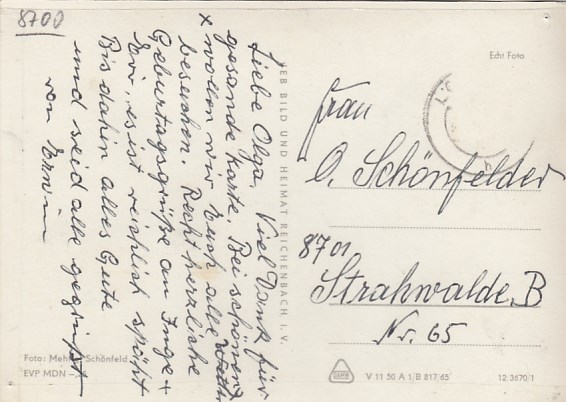 8700
Liebe Olga, Viel Dank für
gesande Karte. Bei schönerd
x wollen wir Euch alle
besuchen. Recht herzliche
Geburtagsgrüße an Inge +
Evi, es ist reichlich spät
Bis dahin alles Gute
und seid alle gegrüßt
von Erwin
VEB BILD UND HEIMAT REICHENBACH I. V.
Echt Foto
Frau
O. Schönfelder
8701
Strahwalde, B
Nr. 65
Foto: Schönfeld
EVP MDN
V 11 50 A 1/B 817/65
12 3670/1